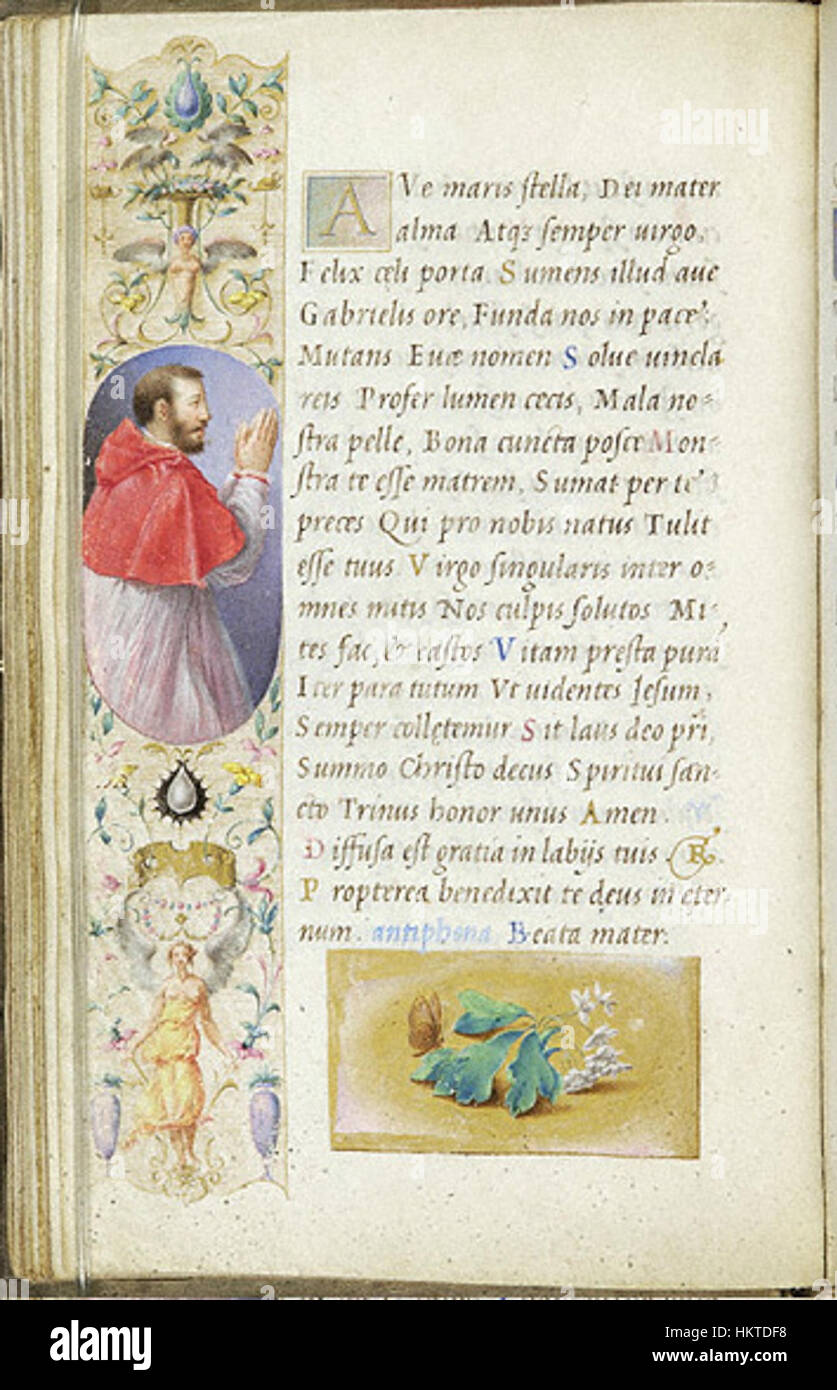 AVe maris ſtella, Dei mater
alma Atqȝ ſemper uirgo,
Felix cęli porta Sumens illud aue
Gabrielis ore, Funda nos in pace,
Mutans Euæ nomen Solue uincla
reis Profer lumen cęcis, Mala no=
ſtra pelle, Bona cuncta poſce Mon=
ſtra te eſſe matrem, Sumat per te
preces Qui pro nobis natus Tulit
eſſe tuus Virgo ſingularis inter o=
mnes mitis Nos culpis ſolutos Mi=
tes fac, & caſtos Vitam pręſta purā
Iter para tutum Vt uidentes Ieſum,
Semper collętemur Sit laus deo pr̄i,
Summo Chriſto decus Spiritui ſan=
cto Trinus honor unus Amen.
Diffuſa eſt gratia in labijs tuis. R.
Propterea benedixit te deus in eter
num. antiphona Beata mater.
alamy
Image ID: HKTDF8
www.alamy.com